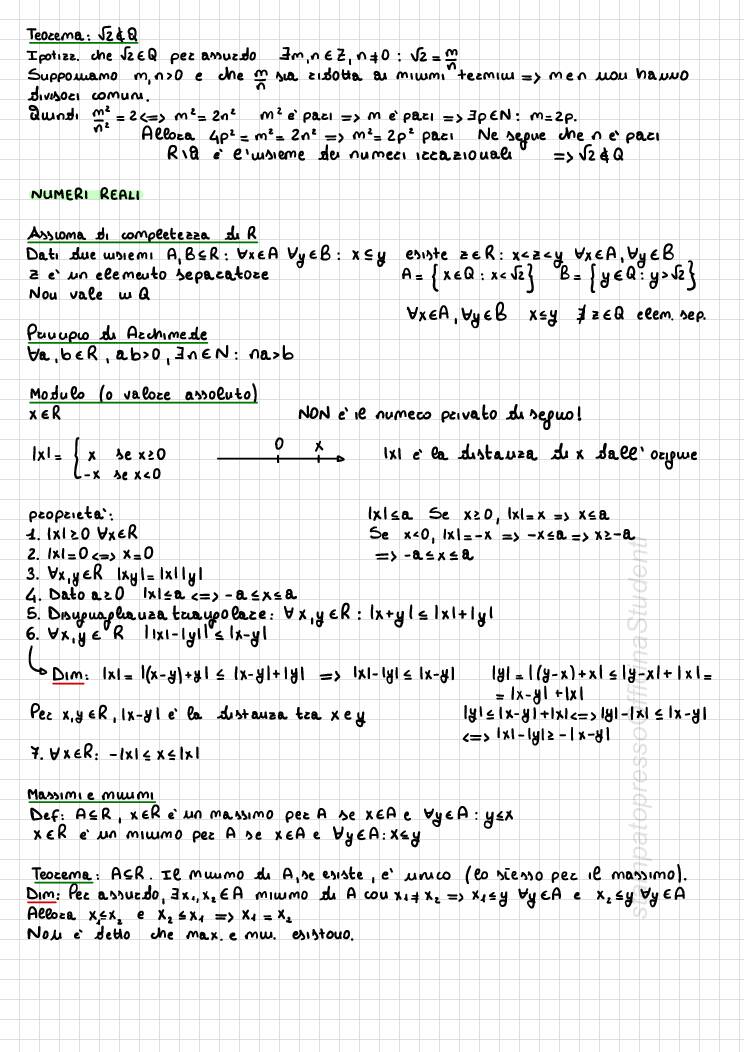 Teorema: √2 ∉ Q
Ipotizz. che √2 ∈ Q per assurdo ∃m,n ∈ Z, n≠0 : √2 = m/n
Supponiamo m,n>0 e che m/n sia ridotta ai minimi termini => m e n non hanno
divisori comuni.
Quindi m²/n² = 2 <=> m² = 2n² m² è pari => m è pari => ∃p∈N: m=2p.
Allora 4p² = m² = 2n² => m² = 2p² pari Ne segue che n è pari
R\Q è l'insieme dei numeri irrazionali => √2 ∉ Q
NUMERI REALI
Assioma di completezza di R
Dati due insiemi A,B⊆R: ∀x∈A ∀y∈B: x≤y esiste z∈R: x<z<y ∀x∈A, ∀y∈B
z è un elemento separatore A = {x∈Q : x<√2} B = {y∈Q : y>√2}
Non vale in Q
∀x∈A, ∀y∈B x≤y ∄z∈Q elem. sep.
Principio di Archimede
∀a,b∈R, ab>0, ∃n∈N: na>b
Modulo (o valore assoluto)
x∈R NON è il numero privato di segno!
|x| = { x se x≥0 0 x |x| è la distanza di x dall'origine
-x se x<0
proprietà: |x|≤a Se x≥0, |x|=x => x≤a
1. |x|≥0 ∀x∈R Se x<0, |x|=-x => -x≤a => x≥-a
2. |x|=0 <=> x=0 => -a≤x≤a
3. ∀x,y∈R |xy|=|x||y|
4. Dato a≥0 |x|≤a <=> -a≤x≤a
5. Disuguaglianza triangolare: ∀x,y∈R: |x+y|≤|x|+|y|
6. ∀x,y∈R ||x|-|y||≤|x-y|
Dim: |x|=|(x-y)+y|≤|x-y|+|y| => |x|-|y|≤|x-y| |y|=|(y-x)+x|≤|y-x|+|x|=
=|x-y|+|x|
Per x,y∈R, |x-y| è la distanza tra x e y |y|≤|x-y|+|x| <=> |y|-|x|≤|x-y|
<=> |x|-|y|≥-|x-y|
7. ∀x∈R: -|x|≤x≤|x|
Massimi e minimi
Def: A⊆R, x∈R è un massimo per A se x∈A e ∀y∈A: y≤x
x∈R è un minimo per A se x∈A e ∀y∈A: x≤y
Teorema: A⊆R. Il minimo di A, se esiste, è unico (lo stesso per il massimo).
Dim: Per assurdo, ∃x₁,x₂∈A minimo di A con x₁≠x₂ => x₁≤y ∀y∈A e x₂≤y ∀y∈A
Allora x₁≤x₂ e x₂≤x₁ => x₁=x₂
Non è detto che max. e min. esistono.